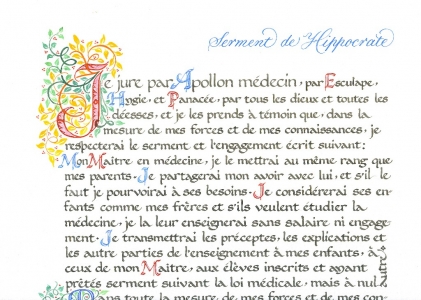 Serment de Hippocrate
Je jure par Apollon médecin, par Esculape,
Hygie, et Panacée, par tous les dieux et toutes les
déesses, et je les prends à témoin que, dans la
mesure de mes forces et de mes connaissances, je
respecterai le serment et l'engagement écrit suivant:
Mon Maitre en médecine, je le mettrai au même rang que
mes parents. Je partagerai mon avoir avec lui, et s'il le
faut je pourvoirai à ses besoins. Je considérerai ses en-
fants comme mes frères et s'ils veulent étudier la
médecine, je la leur enseignerai sans salaire ni engage
ment. Je transmettrai les préceptes, les explications et
les autres parties de l'enseignement à mes enfants, à
ceux de mon Maitre, aux élèves inscrits et ayant
prêtés serment suivant la loi médicale, mais à nul autre.
Dans toute la mesure de mes forces et de mes con-